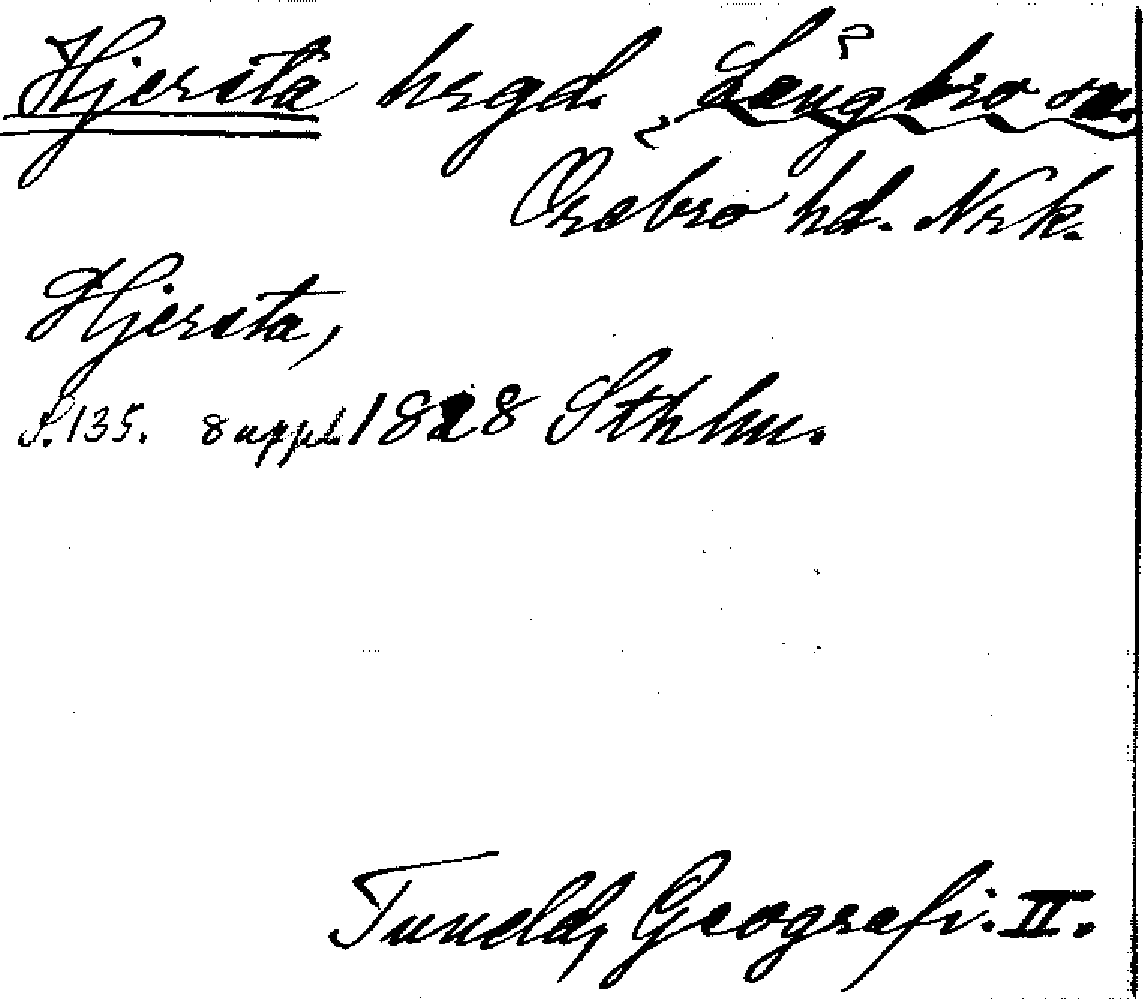 Hjersta hrgd. Längbro sn.
Örebro hd. Nrk.
Hjersta,
S. 135. 8 uppl. 1828 Sthlm.
Tuneld, Geografi. II.